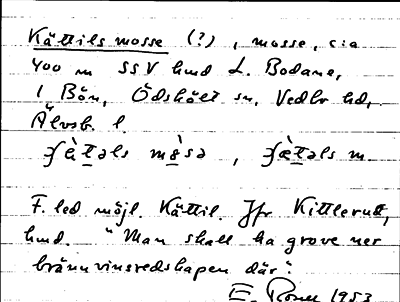 Kättils mosse (?), mosse, c:a
400 m SSV hmd L. Bodane,
i Bön, Ödskölt sn, Vedbo hd,
Älvsb. l.
m
F. led möjl. Kättil. Jfr Kittlerud,
hmd. "Man skall ha grove ner
brännvinsredskapen där".
E. 1953